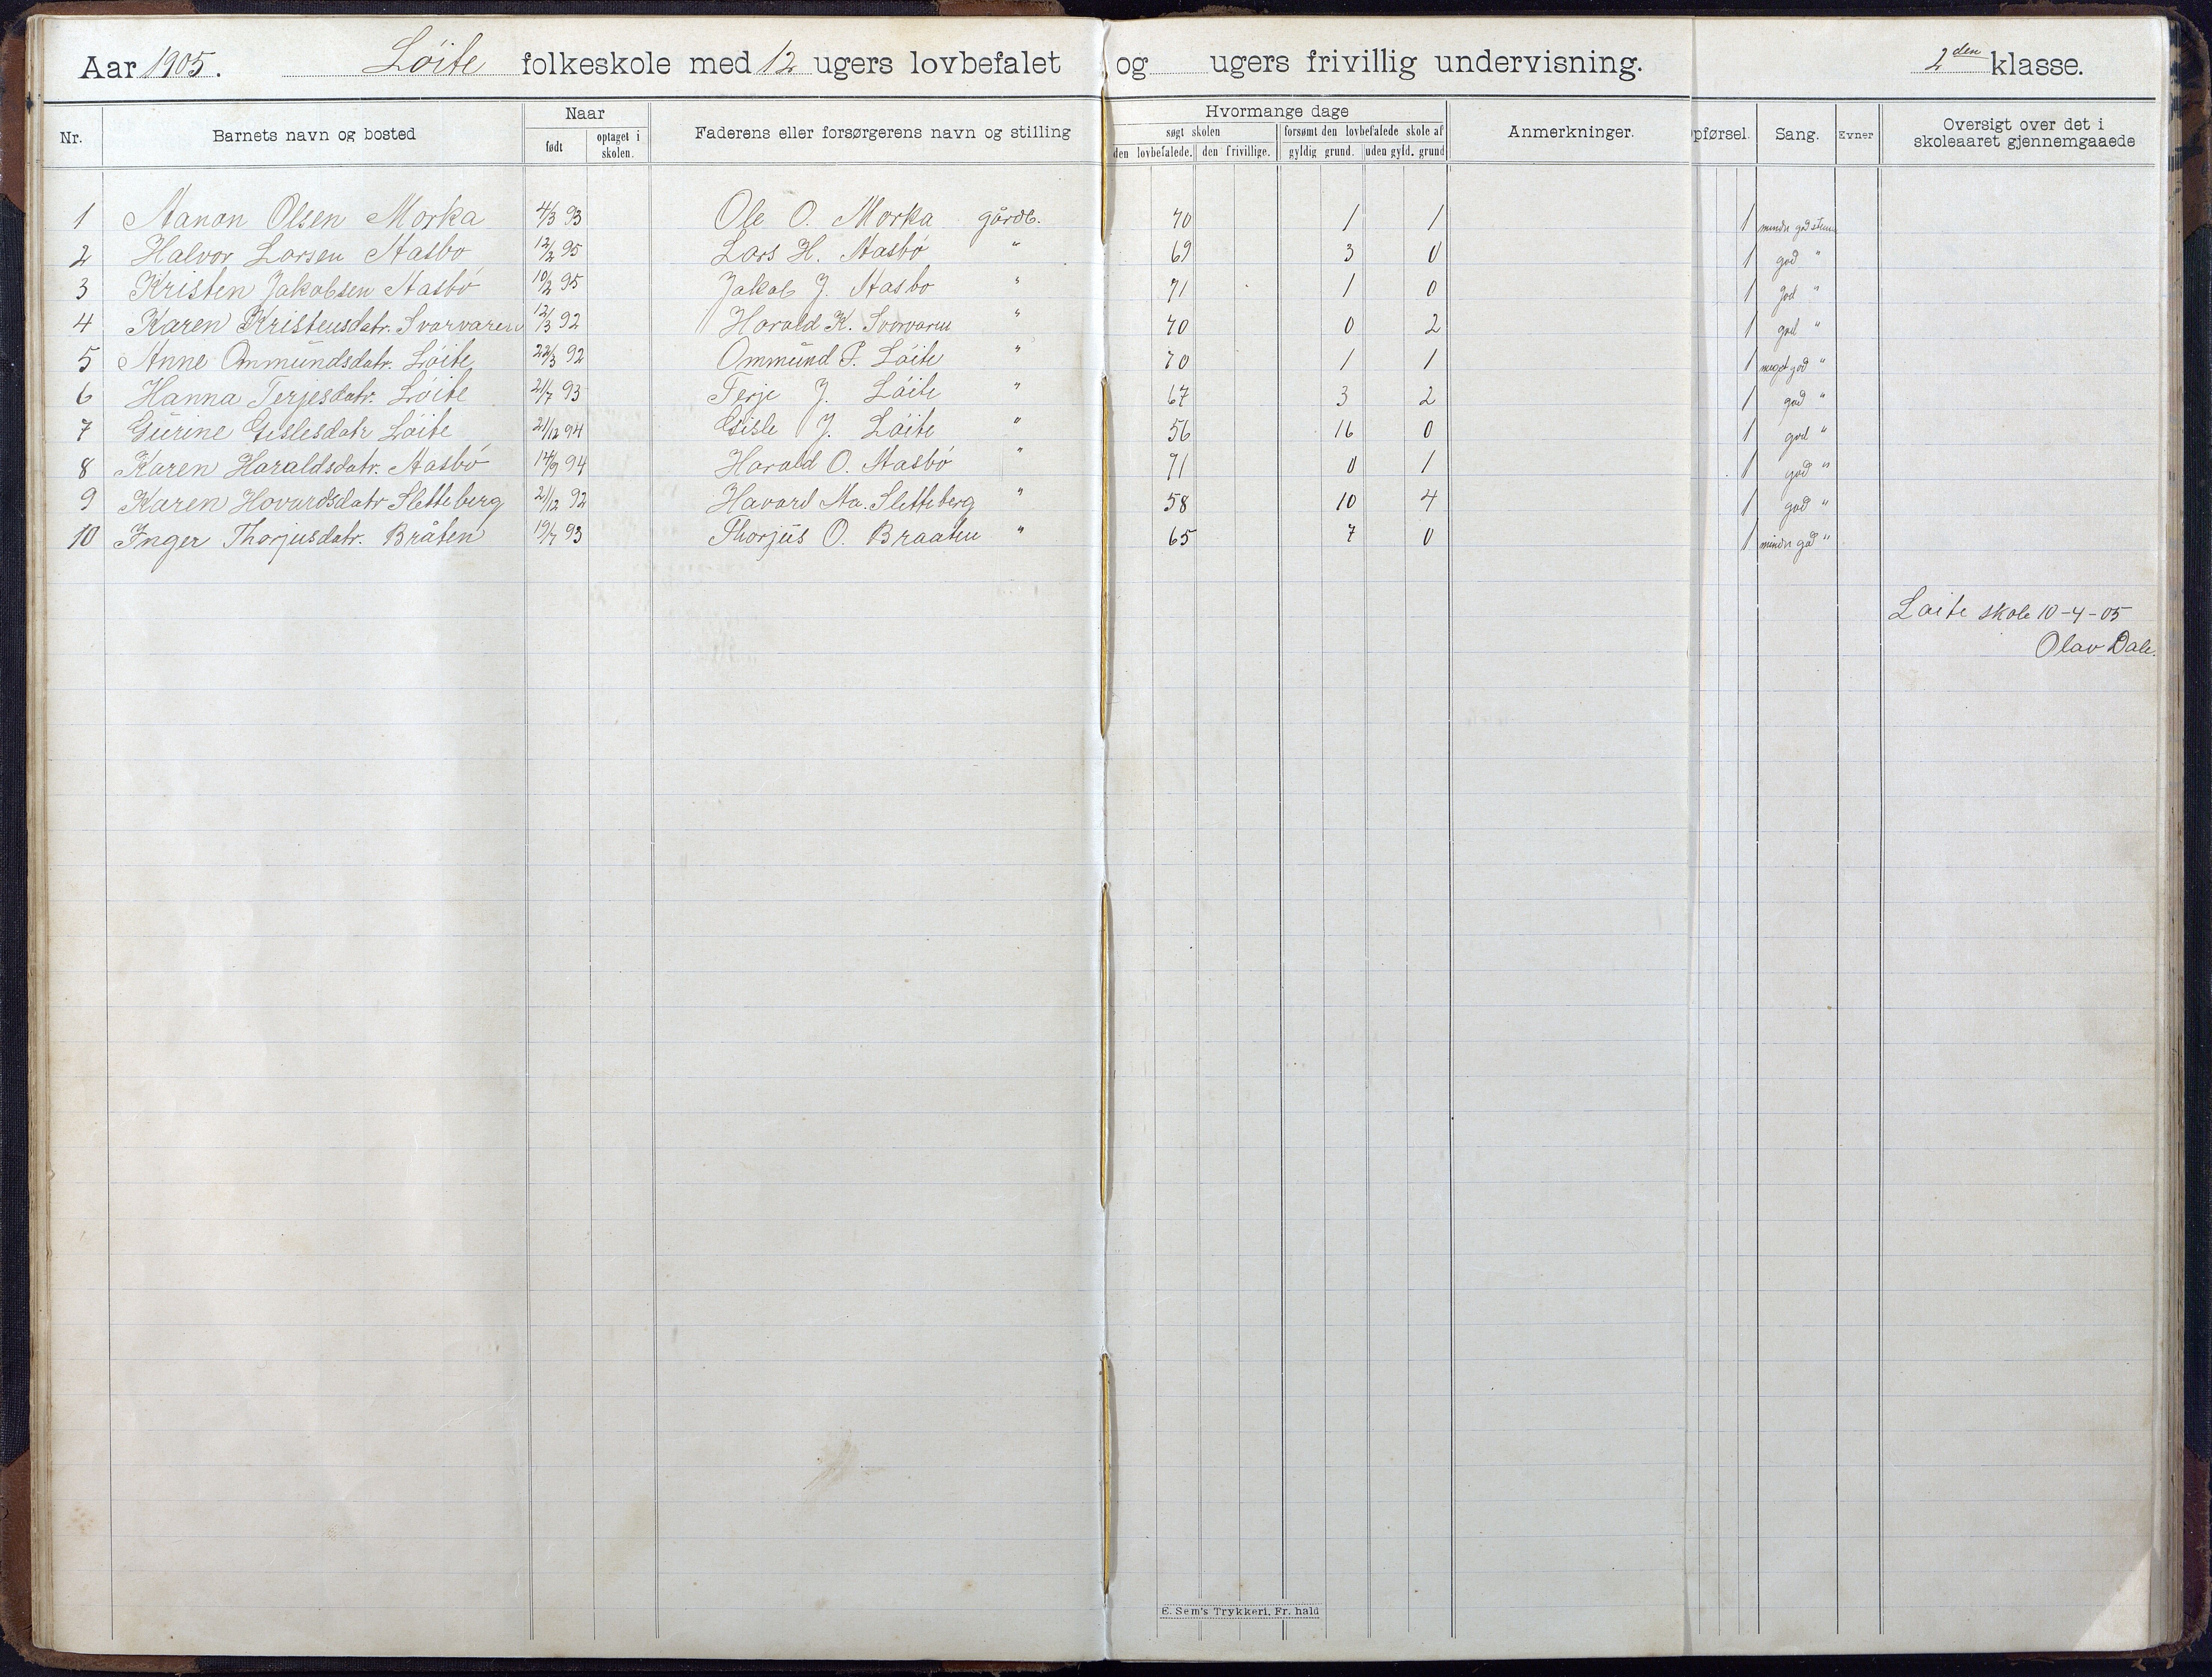 Aar 1905. Löite folkeskole med 12 ugers lovbefalet og ugers frivillig undervisning. 2den klasse.
Nr. Barnets navn og bosted Naar født optaget i skolen. Faderens eller forsørgerens navn og stilling Hvormange dage søgt skolen den lovbefalede. den frivillige. forsømt den lovbefalede skole af gyldig grund. uden gyld. grund Anmerkninger. pførsel. Sang. Evner Oversigt over det i skoleaaret gjennemgaaede
1 Aanon Olsen Morka 4/3 93 Ole O. Morka gårdb. 70 1 1 1 mindre god stem
2 Halvor Larsen Aasbö 12/2 95 Lars H. Aasbö " 69 3 0 1 god "
3 Kristen Jakobsen Aasbö 10/2 95 Jakob J. Aasbö " 71 1 0 1 god "
4 Karen Kristensdatr. Svarvaren 12/3 92 Harald K. Svarvaren " 70 0 2 1 god "
5 Anne Ommundsdatr. Löite 22/3 92 Ommund P. Löite " 70 1 1 1 meget god "
6 Hanna Terjesdatr. Löite 21/7 93 Terje J. Löite " 67 3 2 1 god "
7 Gurine Gislesdatr Löite 21/12 94 Gisle J. Löite " 56 16 0 1 god "
8 Karen Haraldsdatr. Aasbö 14/9 94 Harald O. Aasbö " 71 0 1 1 god "
9 Karen Hovardsdatr Sletteberg 21/12 92 Havard Aa. Sletteberg " 58 10 4 1 god "
10 Inger Thorjusdatr. Bråten 19/7 93 Thorjus O. Braaten " 65 7 0 1 mindre god "
Löite skole 10-4-05
Olav Dale.
E. Sem's Trykkeri, Fr. hald